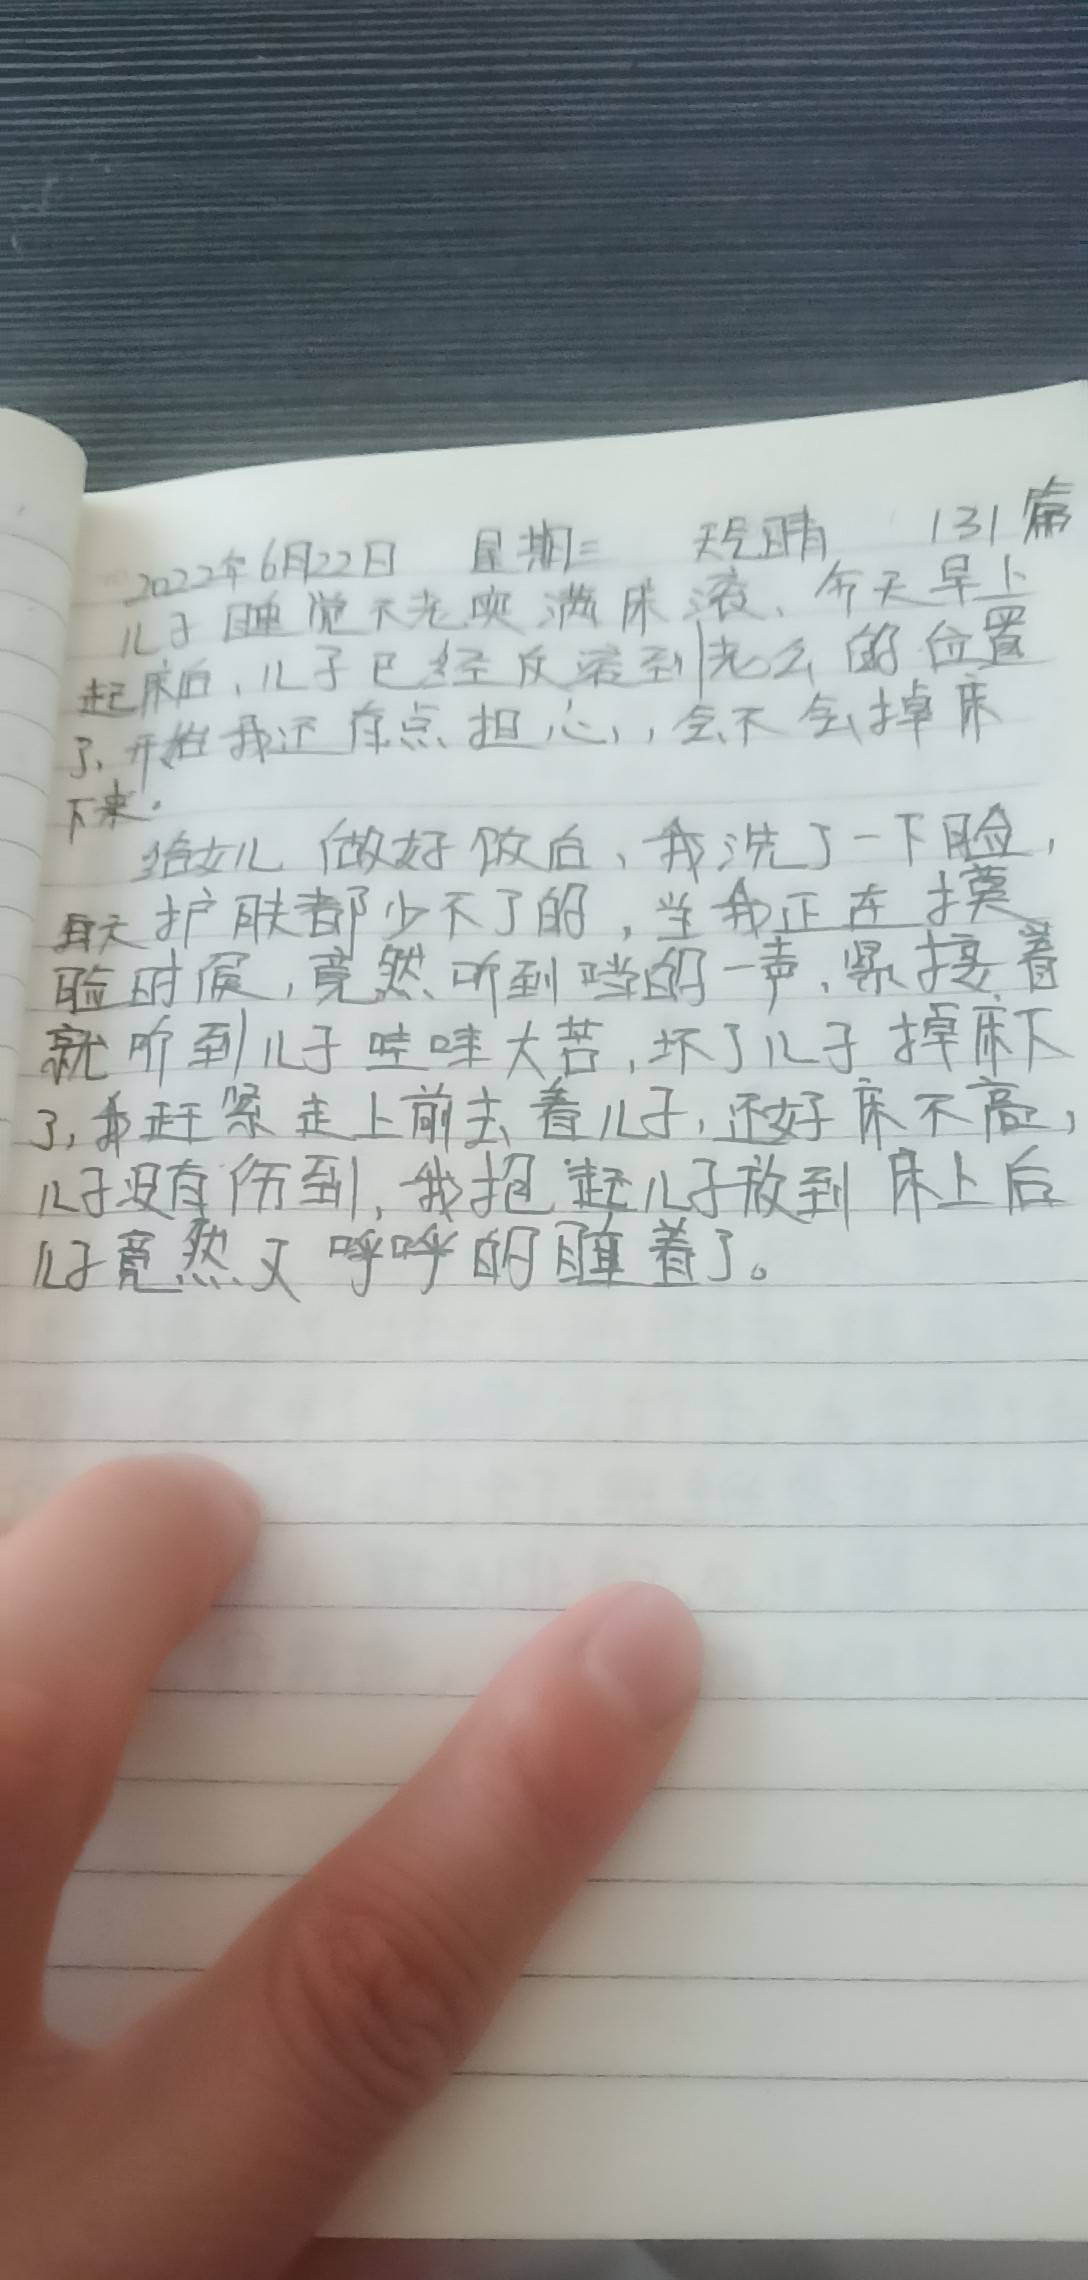 2022年6月22日 星期三 天气晴 131篇
儿子睡觉不老实满床滚、今天早上
起床后,儿子已经反滚到老公的位置
了、开始我还有点担心,,会不会掉床
下来.
给女儿做好饭后、我洗了一下脸,
每天护肤都少不了的,当我正在摸
脸时候,竟然听到当的一声,紧接着
就听到儿子哇哇大苦,坏了儿子掉床下
了,我赶紧走上前去着儿子,还好床不高,
儿子没有伤到,我抱起儿子放到床上后
儿子竟然又呼呼的睡着了。